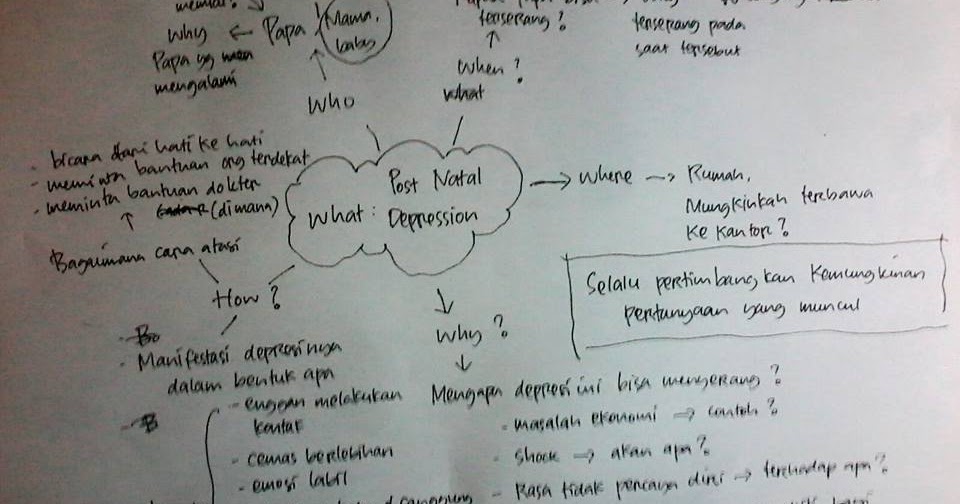 Why ← Papa / Mama,
baby
Papa yg
mengalami
Who
terserang?
When?
What
terserang pada
saat tersebut
- bicara dari hati ke hati
- meminta bantuan org terdekat
- meminta bantuan dokter
(dimana)
Bagaimana cara atasi
How?
What: Post Natal
Depression
→ Where → Rumah,
Mungkinkah terbawa
ke kantor?
Selalu pertimbangkan kemungkinan
pertanyaan yang muncul
- Manifestasi depresinya
dalam bentuk apa
- enggan melakukan
kontak
- cemas berlebihan
- emosi labil
Why?
Mengapa depresi ini bisa menyerang?
- masalah ekonomi → contoh?
- shock → akan apa?
- Rasa tidak percaya diri → terhadap apa?